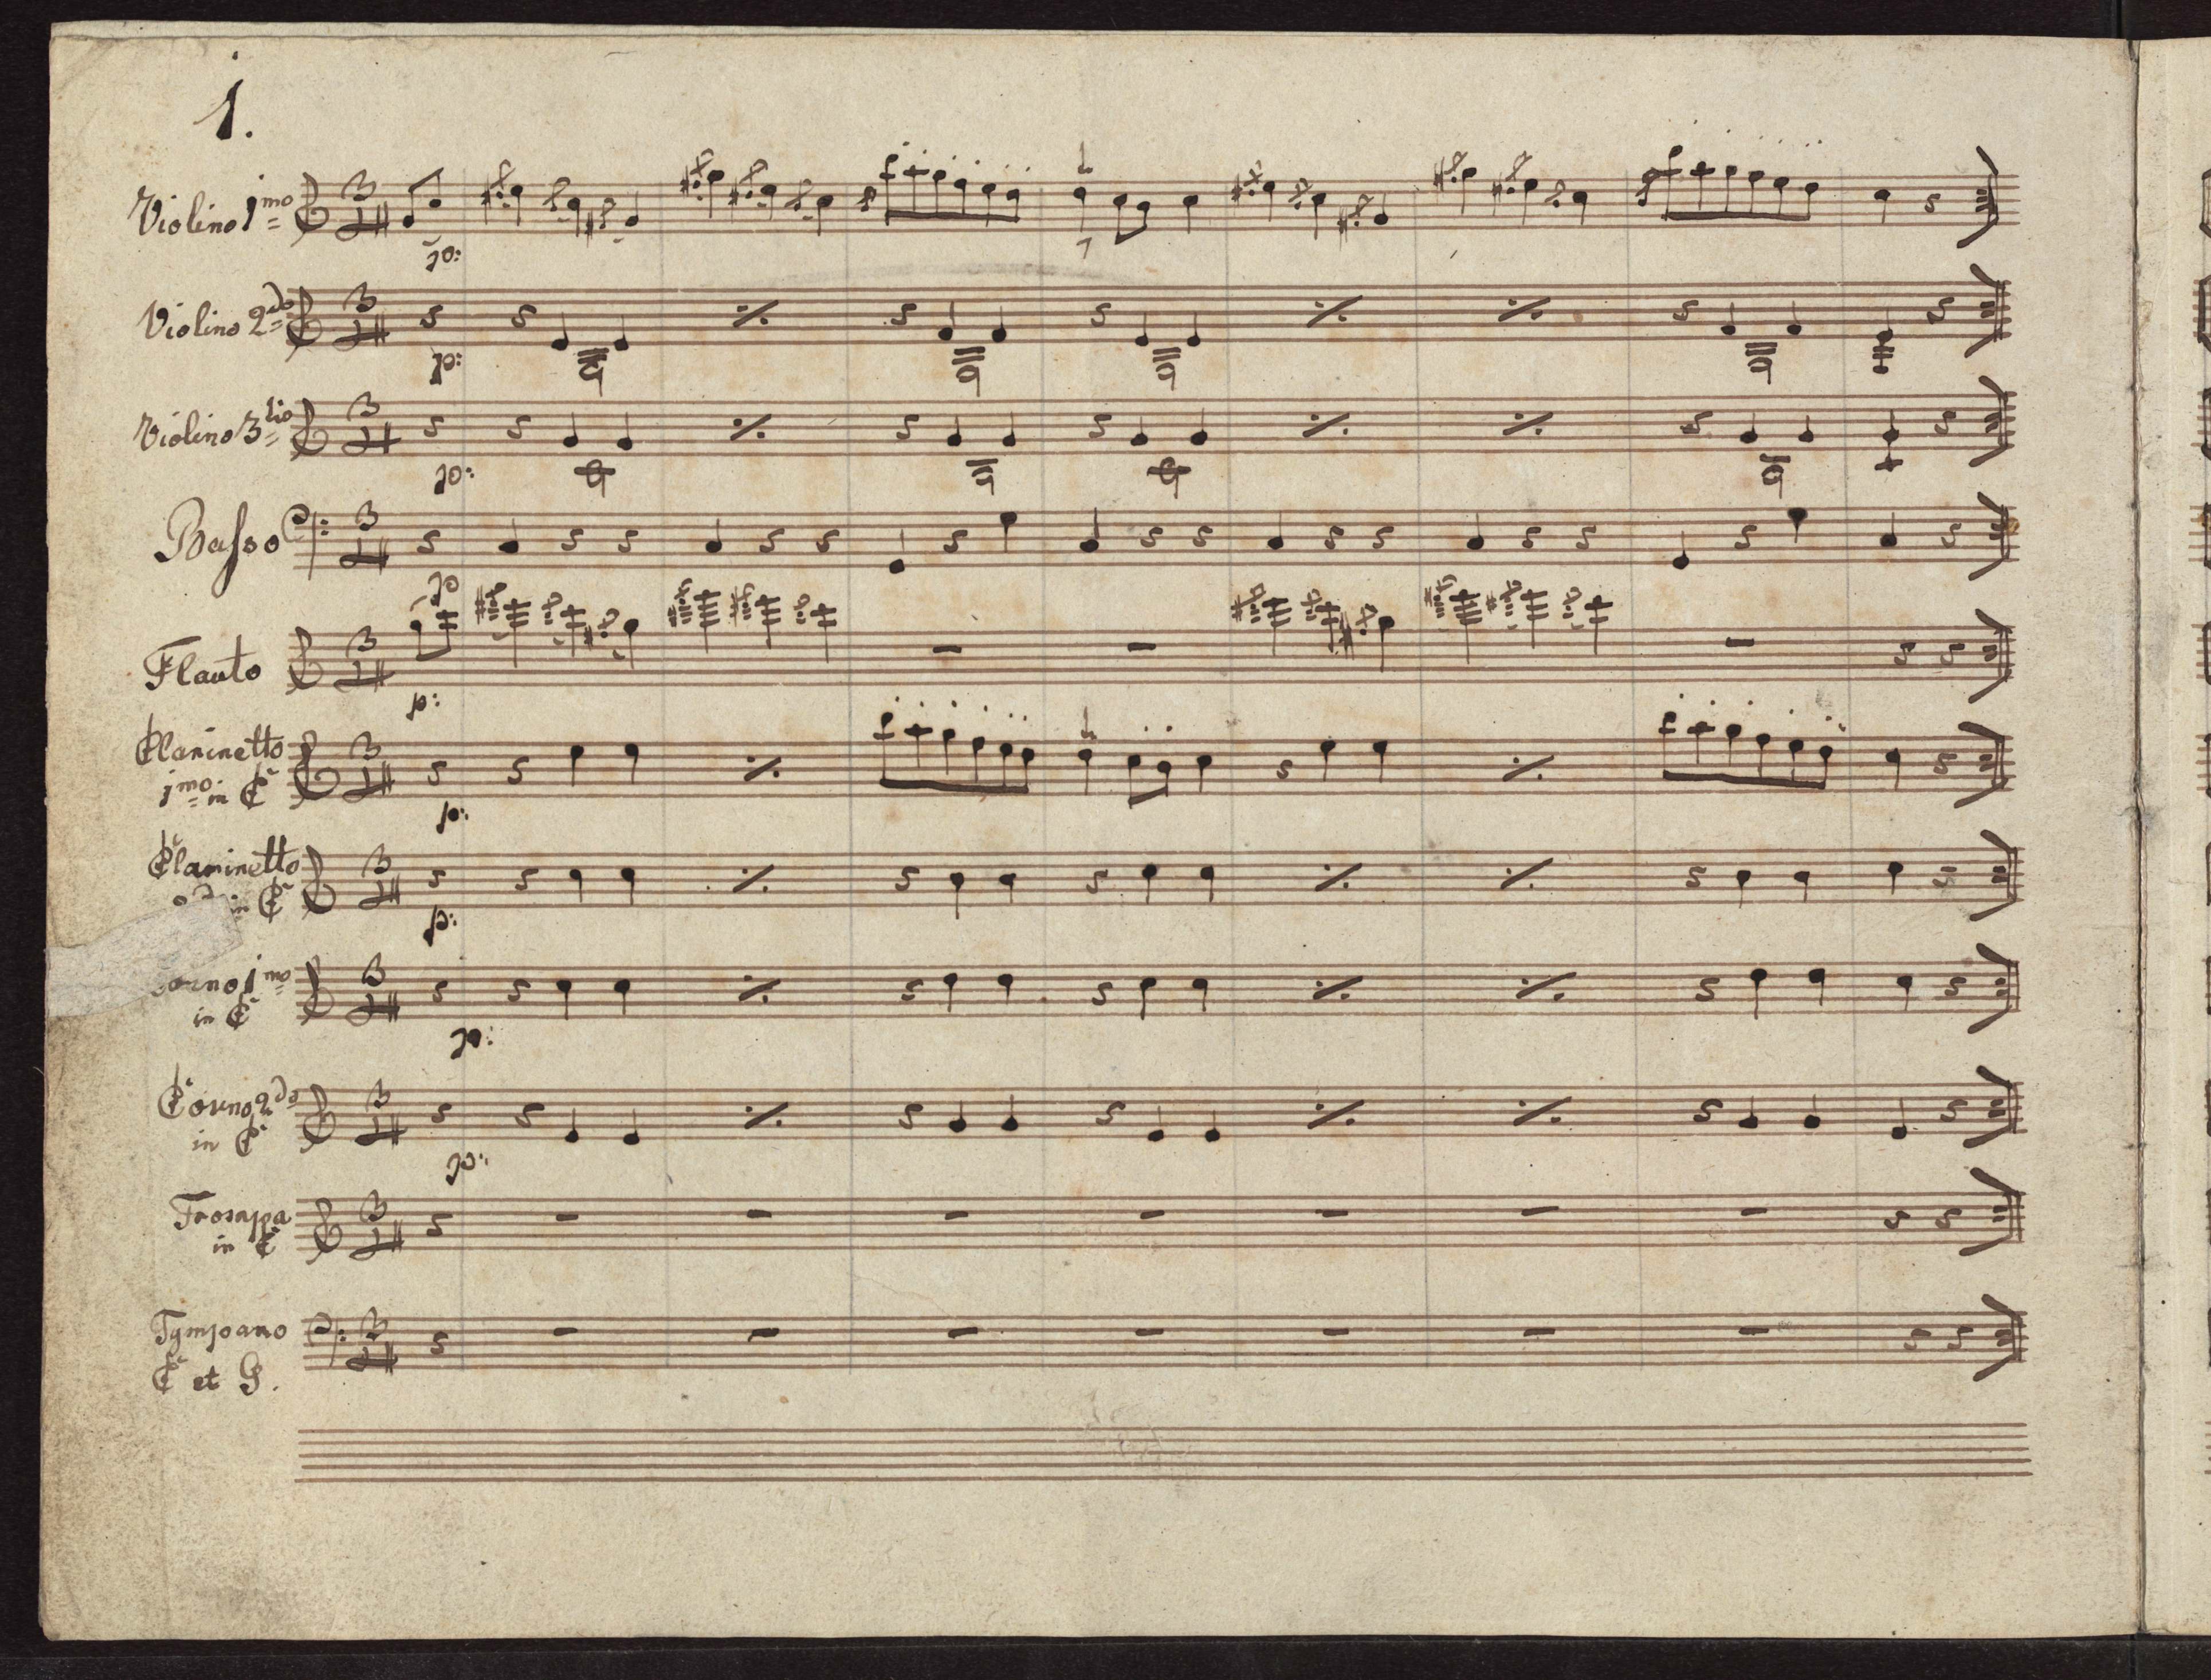 1.
Violino 1mo
po:
Violino 2do
po:
Violino 3tio
po:
Basso
po
Flauto
p:
Clarinetto
1mo in C
p:
Clarinetto
in C
p:
1mo
in C
po:
Corno 2do
in C
po:
Trompa
in C
Tympano
C et G.